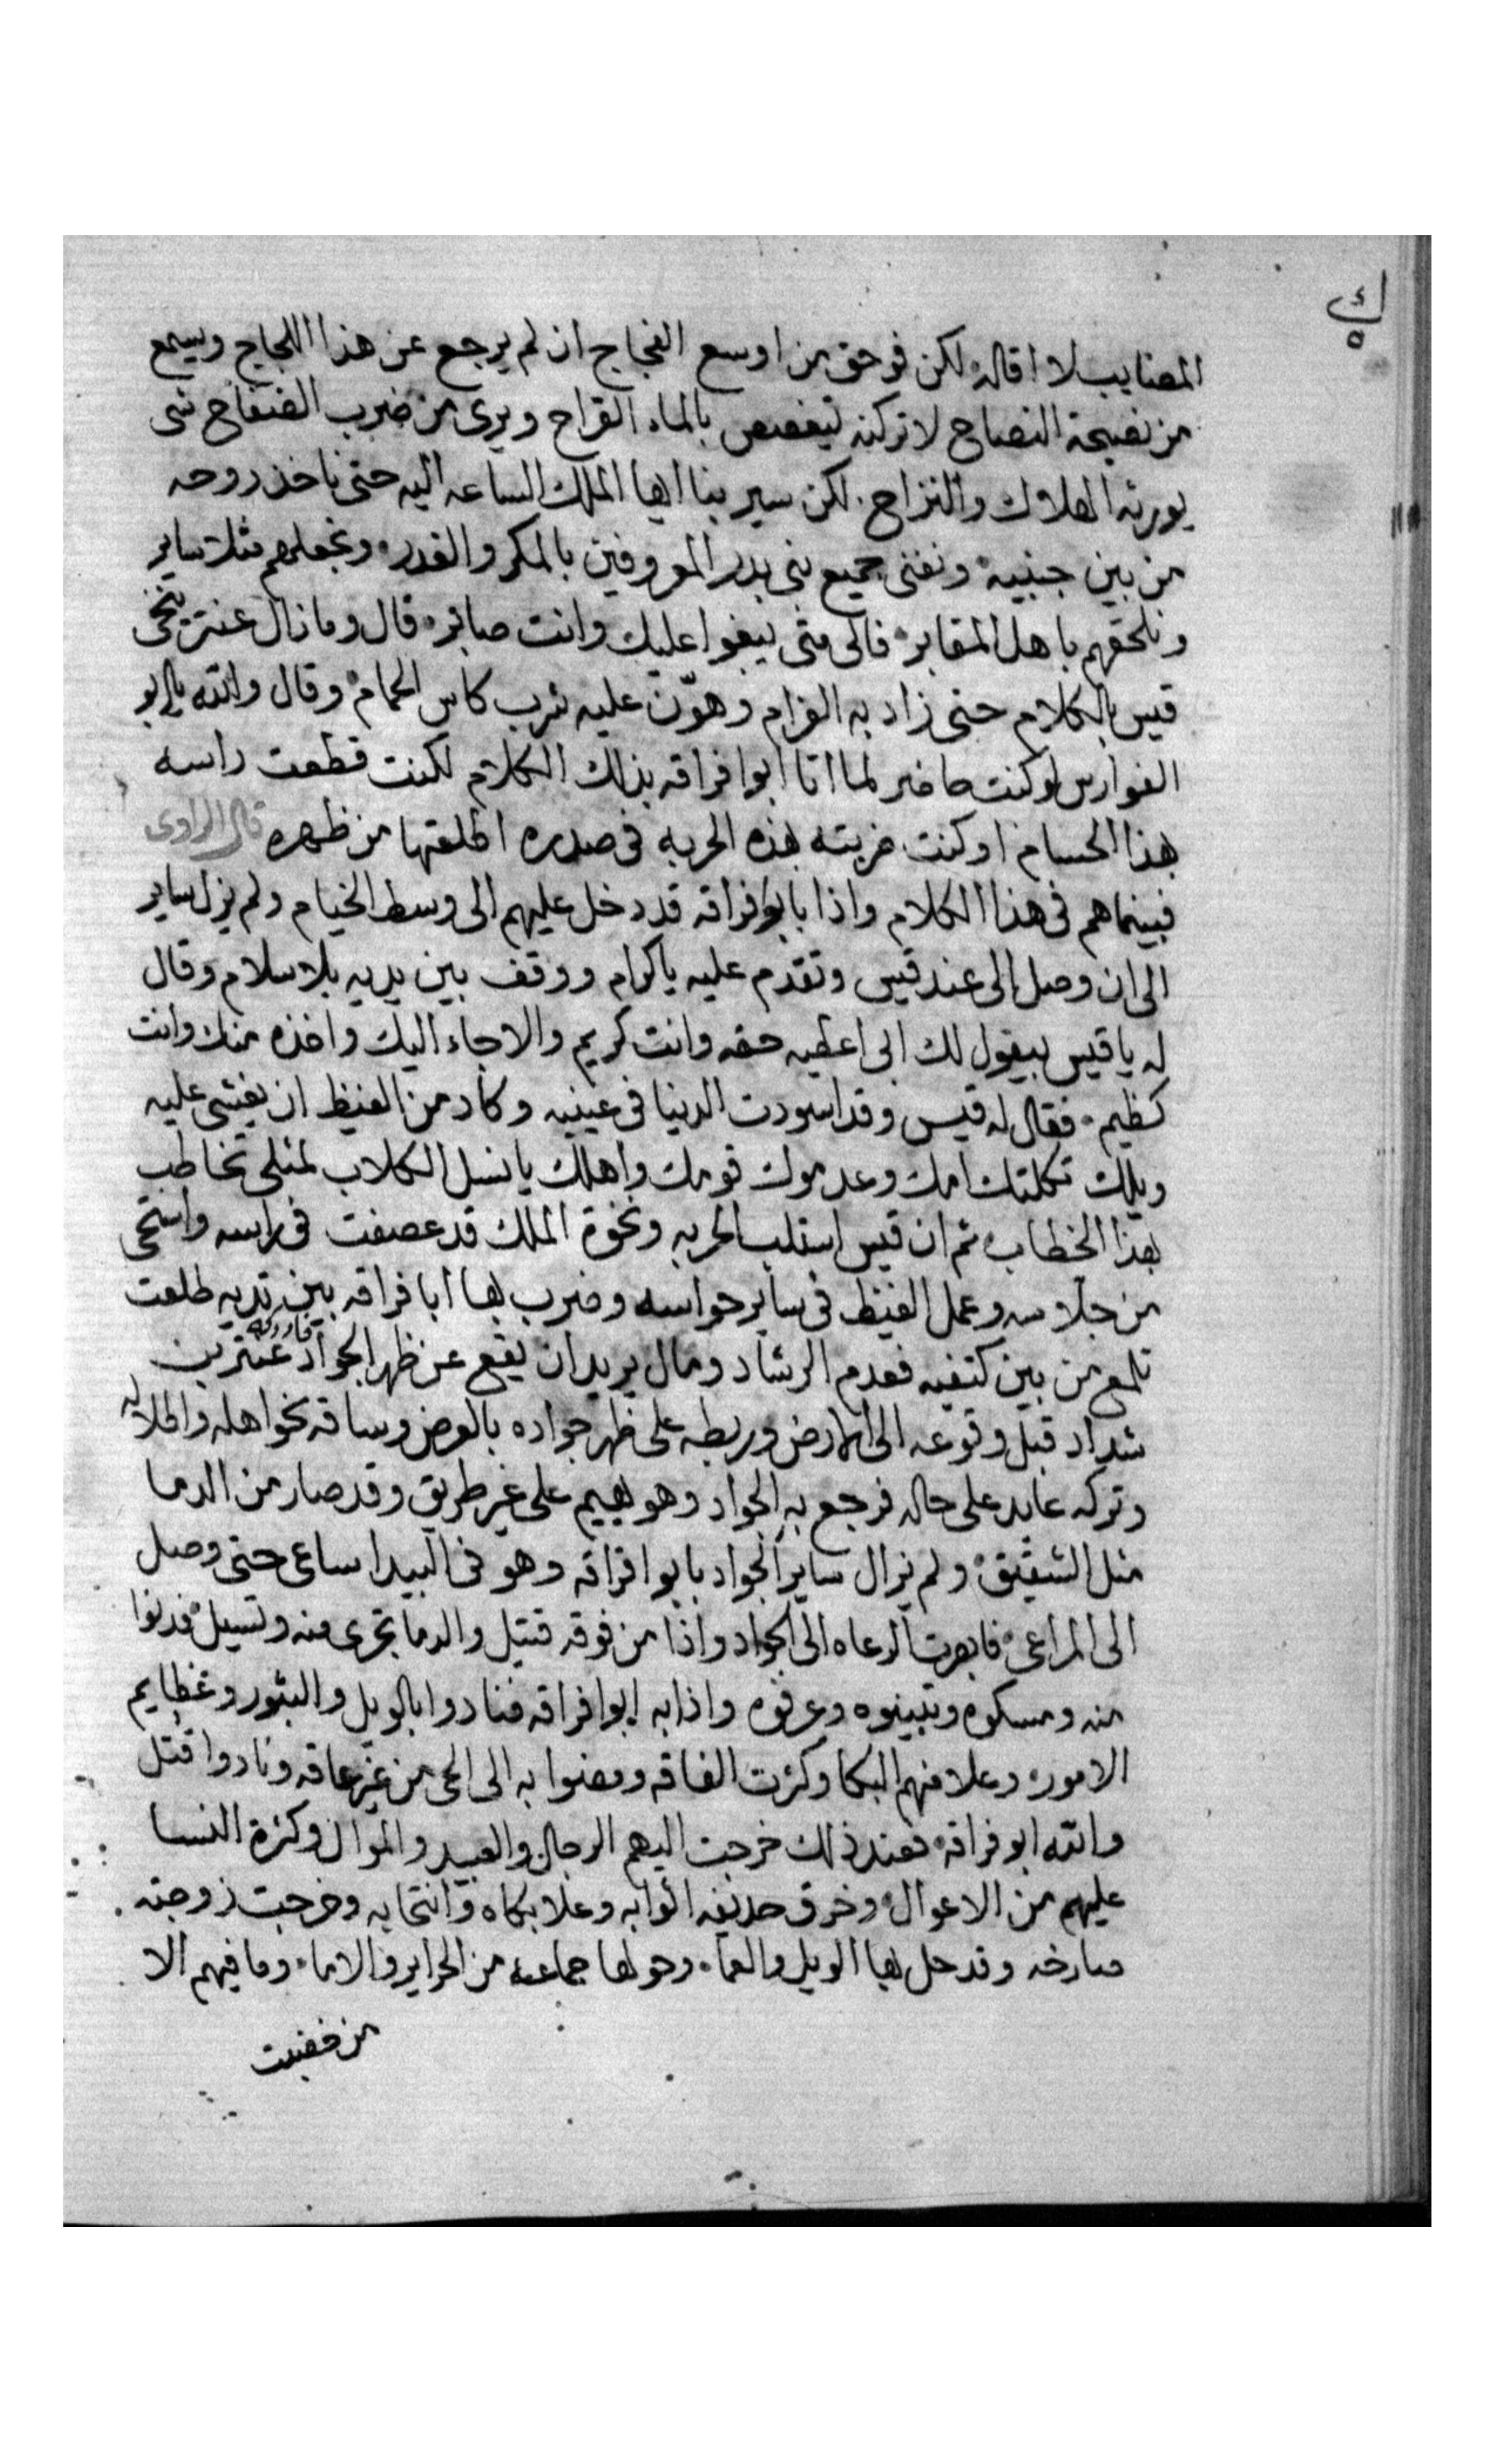 ك
٥
المصايب لا اقاله لكن فوحق من اوسع الفجاج ان لم يرجع عن هذا اللجاج ويسمع
من نصيحة النصاح لاتركنه يتغصص بالماء القراح ويرى من ضرب الصفاح شي
يورثه الهلاك والنزاح لكن سير بنا ايها الملك الساعه اليه حتى ناخذ روحه
من بين جنبيه ونفنى جميع بنى بدر المعروفين بالمكر والغدر ونجعلهم مثلا ساير
ونلحقهم باهل المقابر فالى متى يبغوا عليك وانت صابر قال وما زال عنتر ينخى
قيس بالكلام حتى زاد به الغرام وهوّن عليه شرب كاس الحمام وقال والله يابو
الفوارس لو كنت حاضر لما اتا ابوا فراقه بذلك الكلام لكنت قطعت راسه
بهذا الحسام او كنت ضربته بهذه الحربه فى صدره اطلعتها من ظهره قال الراوى
فبينماهم فى هذا الكلام واذا بابوا فراقه قد دخل عليهم الى وسط الخيام ولم يزل ساير
الى ان وصل الى عند قيس وتقدم عليه باكرام ووقف بين يديه بلا سلام وقال
له يا قيس بيقول لك ابى اعطيه حقه وانت كريم والا جاء اليك واخذه منك وانت
كظيم فقال له قيس وقد اسودت الدنيا فى عينيه وكاد من الغيظ ان يغشى عليه
ويلك ثكلتك امك وعدموك قومك واهلك يا نسل الكلاب لمثلى تخاطب
بهذا الخطاب ثم ان قيس استلب الحربه ونخوة الملك قد عصفت فى راسه واستحى
من جلاسه وعمل الغيظ فى ساير حواسه وضرب بها ابا فراقه بين ثدييه طلعت
تلمع من بين كتفيه فعدم الرشاد ومال يريد ان يقع عن ظهر الجواد فادركه عنتر بن
شداد قبل وقوعه الى الارض وربطه على ظهر جواده بالعرض وساقه نحو اهله واطلاله
وتركه عايد على حاله فرجع به الجواد وهو يهيم على غير طريق وقد صار من الدما
مثل الشقيق ولم يزال ساير الجواد بابوا فراقه وهو فى البيدا ساعى حتى وصل
الى المراعى فابصرت الرعاه الى الجواد واذا من فوقه قتيل والدما تجرى منه وتسيل فدنوا
منه ومسكوه وتبينوه وعرفوه واذا به ابوا فراقه فنادوا بالويل والثبور وعظايم
الامور وعلا منهم البكا وكثرت الفاقه ومضوا به الى الحى من غير عاقه ونادوا قتل
والله ابو فراقه فعند ذلك خرجت اليهم الرجال والعبيد والموال وكثرة النسا
عليهم من الاعوال وخرق حديفه اثوابه وعلا بكاه وانتحابه وخرجت زوجته
صارخه وقد حل بها الويل والعما وحولها جماعه من الحراير والاما وما فيهم الا
من